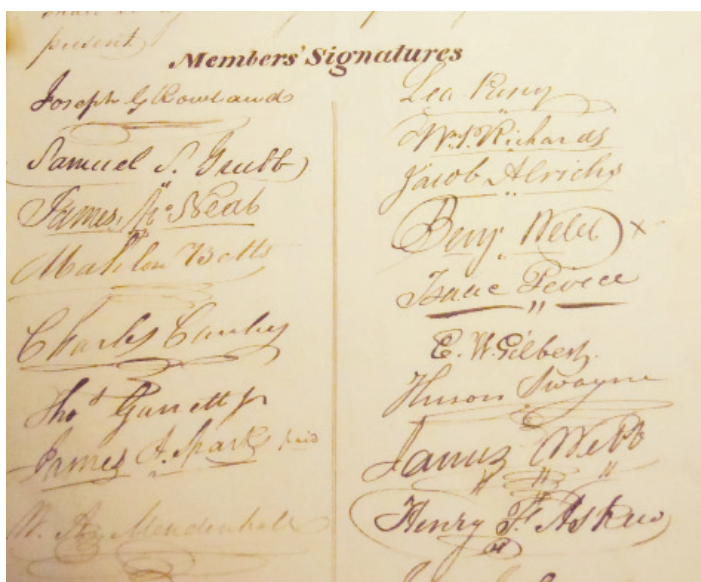 present
Members' Signatures
Joseph G Rowlands
Samuel S. Grubb
James McNeal
Mahlon Betts
Charles Canby
Thos Garrett Jr
James A. Spark paid
W. Mendenhall
Lea Pusey
Wm. P. Richards
Jacob Alrichs
Benj. Webb x
Isaac
E. W. Gilbert
Huson Swayne
James Webb
Henry F Askew